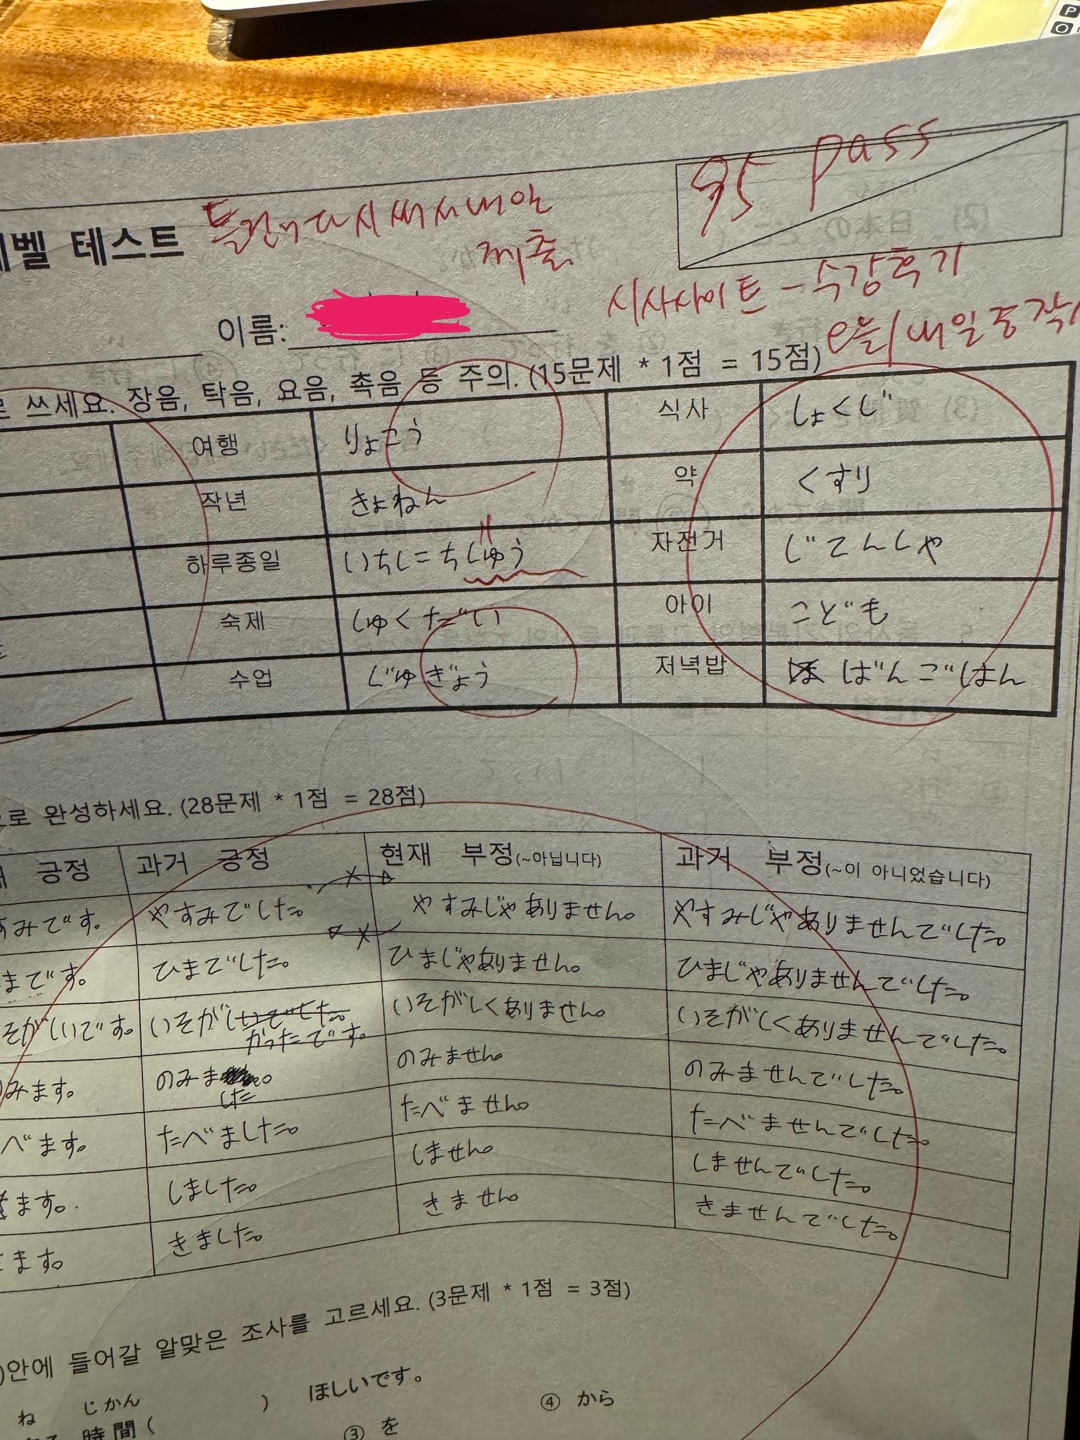 95 pass
벨 테스트 다시 써서 내일
제출.
시사사이트 - 수강후기
이름:
내일
쓰세요. 장음, 탁음, 요음, 촉음 등 주의. (15문제 * 1점 = 15점)
여행 りょこう 식사 しょくじ
작년 きょねん 약 くすり
하루종일 いちにちじゅう 자전거 じてんしゃ
숙제 しゅくだい 아이 こども
수업 じゅぎょう 저녁밥 ばんごはん
로 완성하세요. (28문제 * 1점 = 28점)
긍정 과거 긍정 현재 부정(~아닙니다) 과거 부정(~이 아니었습니다)
すみです。 やすみでした。 やすみじゃありません。 やすみじゃありませんでした。
まです。 ひまでした。 ひまじゃありません。 ひまじゃありませんでした。
そがしいです。 いそがしいでした。 いそがしくありません。 いそがしくありませんでした。
かったです。
みます。 のみま。 のみません。 のみませんでした。
した
べます。 たべました。 たべません。 たべませんでした。
ます。 しました。 しません。 しませんでした。
ます。 きました。 きません。 きませんでした。
)안에 들어갈 알맞은 조사를 고르세요. (3문제 * 1점 = 3점)
ね じかん
時間 ( ) ほしいです。
③ を ④ から